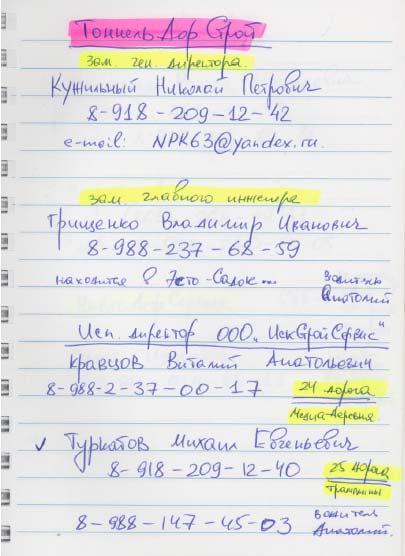 Тоннель Дор Строй
зам. ген. директора.
Кужильный Николай Петрович
8-918-209-12-42
e-mail: NPK63@yandex.ru.
зам. главного инженера
Грищенко Владимир Иванович
8-988-237-68-59
находится в Эсто-Садок...
Водитель
Анатолий
Исп. директор ООО „ИскСтройСервис"
Кравцов Виталий Анатольевич
8-988-2-37-00-17
24 дорога
Медиа-Деревня
✓ Туркатов Михаил Евгеньевич
8-918-209-12-40
25 дорога
трамплины
8-988-147-45-03
Водитель
Анатолий.